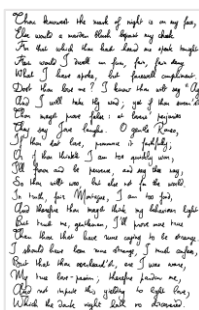 Thou knowest the mask of night is on my face,
Else would a maiden blush bepaint my cheek
For that which thou hast heard me speak tonight
Fain would I dwell on form, fain, fain deny
What I have spoke, but farewell compliment.
Dost thou love me? I know thou wilt say "Ay"
And I will take thy word; yet if thou swear'st
Thou mayst prove false: at lovers' perjuries
They say Jove laughs. O gentle Romeo,
If thou dost love, pronounce it faithfully;
Or if thou thinkst I am too quickly won,
I'll frown and be perverse, and say thee nay,
So thou wilt woo, but else not for the world.
In truth, fair Montague, I am too fond,
And therefore thou mayst think my behaviour light
But trust me, gentleman, I'll prove more true
Than those that have more cunning to be strange.
I should have been more strange, I must confess,
But that thou overheard'st, ere I was ware,
My true love-passion; therefore pardon me,
And not impute this yielding to light love,
Which the dark night hath so discovered.